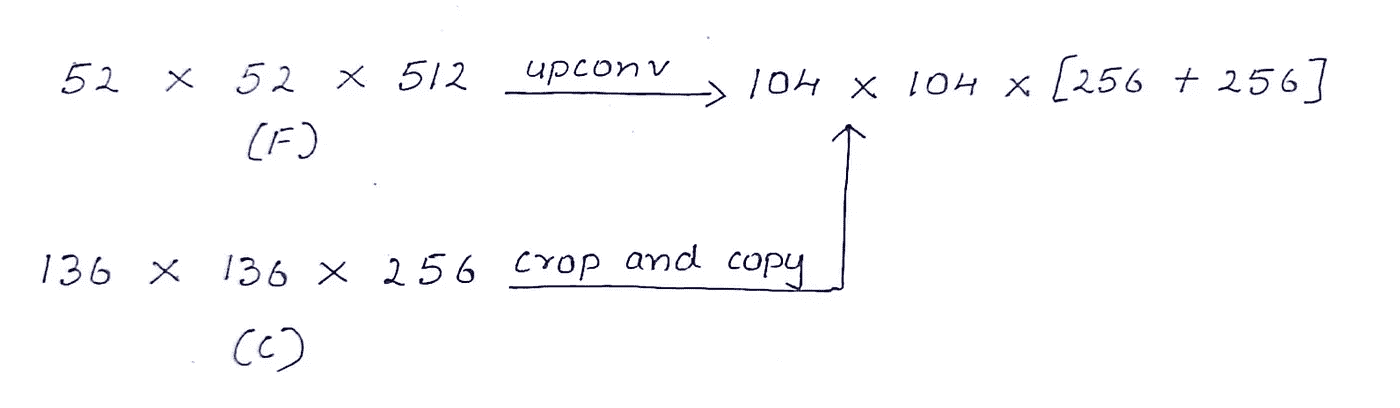 52 × 52 × 512 upconv → 104 × 104 × [256 + 256]
(F)
136 × 136 × 256 crop and copy
(C)